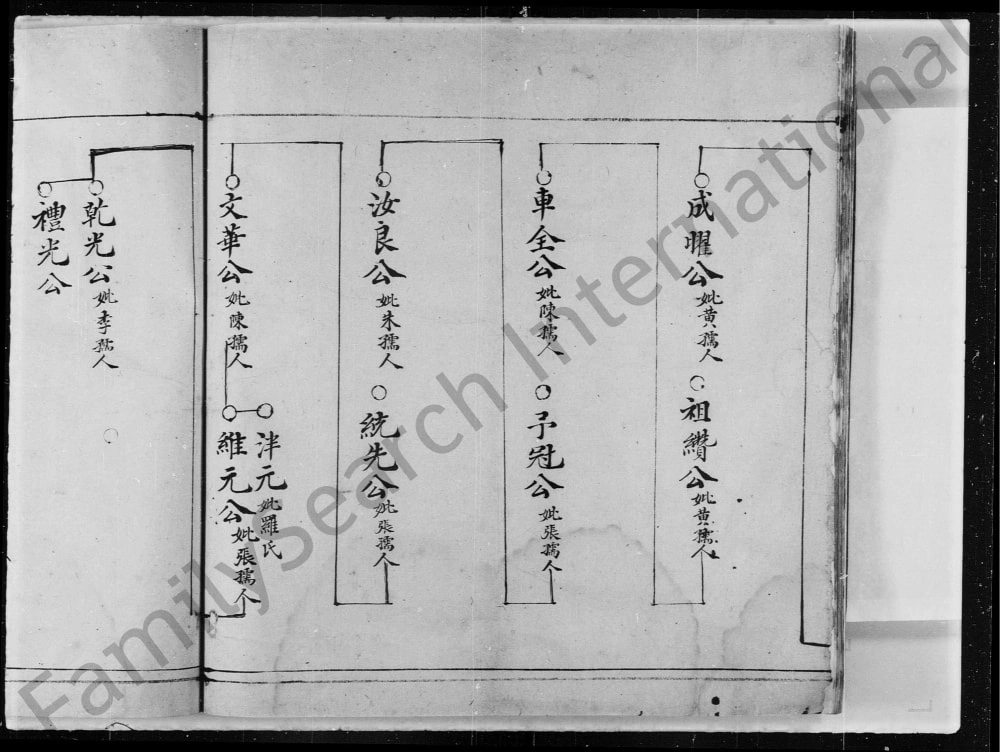 成耀公妣黄孺人
祖纘公妣黄孺人
車全公妣陳孺人
予冠公妣張孺人
汝良公妣朱孺人
統先公妣張孺人
文華公妣陳孺人
泮元妣羅氏
維元公妣張孺人
乾光公妣李孺人
禮光公
FamilySearch International